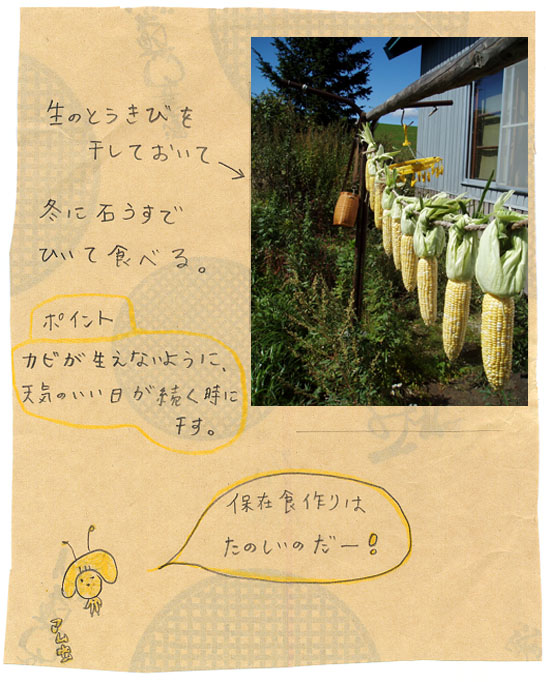 生のとうきびを
干しておいて
冬に石うすで
ひいて食べる。
ポイント
カビが生えないように、
天気のいい日が続く時に
干す。
保在食作りは
たのしいのだー!